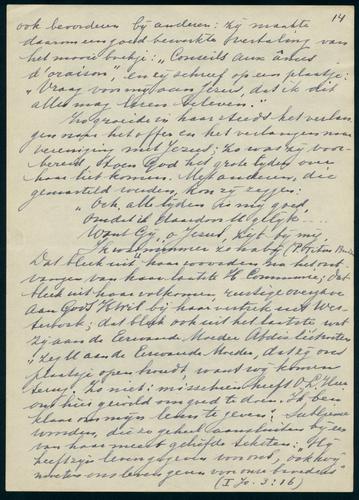 14
ook bevorderen bij anderen: zij maakte
daarom een goed bewerkte vertaling van
het mooie boekje: „Conseils aux âmes
d'oraison", en zij schreef op een plaatje:
„Vraag voor mij aan Jezus, dat ik dit
alles mag leren beleven."
Zo groeide in haar steeds het verlan-
gen naar het offer en het verlangen naar
vereniging met Jezus; zo was zij voor-
bereid, toen God het grote lijden over
haar liet komen. Met anderen, die
gemarteld werden, kon zij zeggen:
„Ook alle lijden is mij goed
omdat ik daardoor U gelijk....
Want Gij, o Jezus, zijt bij mij
Ik was nimmer zo nabij" (P. Titus
Dat bleek uit haar woorden na het ont-
vangen van haar laatste H. Communie; dat
bleek uit haar volkomen, rustige overgave
aan Gods H. Wil bij haar vertrek uit Wes-
terbork; dat bleek ook uit het laatste wat
zij aan de Eerwaarde Moeder Abdis
„Zegt aan de Eerwaarde Moeder, dat zij ons
plaatsje open houdt, want wij komen
terug. Zo niet: misschien heeft O.L. Heer
ons hier gewild om goed te doen. Ik ben
klaar om mijn leven te geven". Sublieme
woorden, die zo geheel aansluiten bij een
van haar meest geliefde teksten: „Hij
heeft zijn leven gegeven voor ons, ook wij
moeten ons leven geven voor onze broeders"
(I Jo. 3:16)